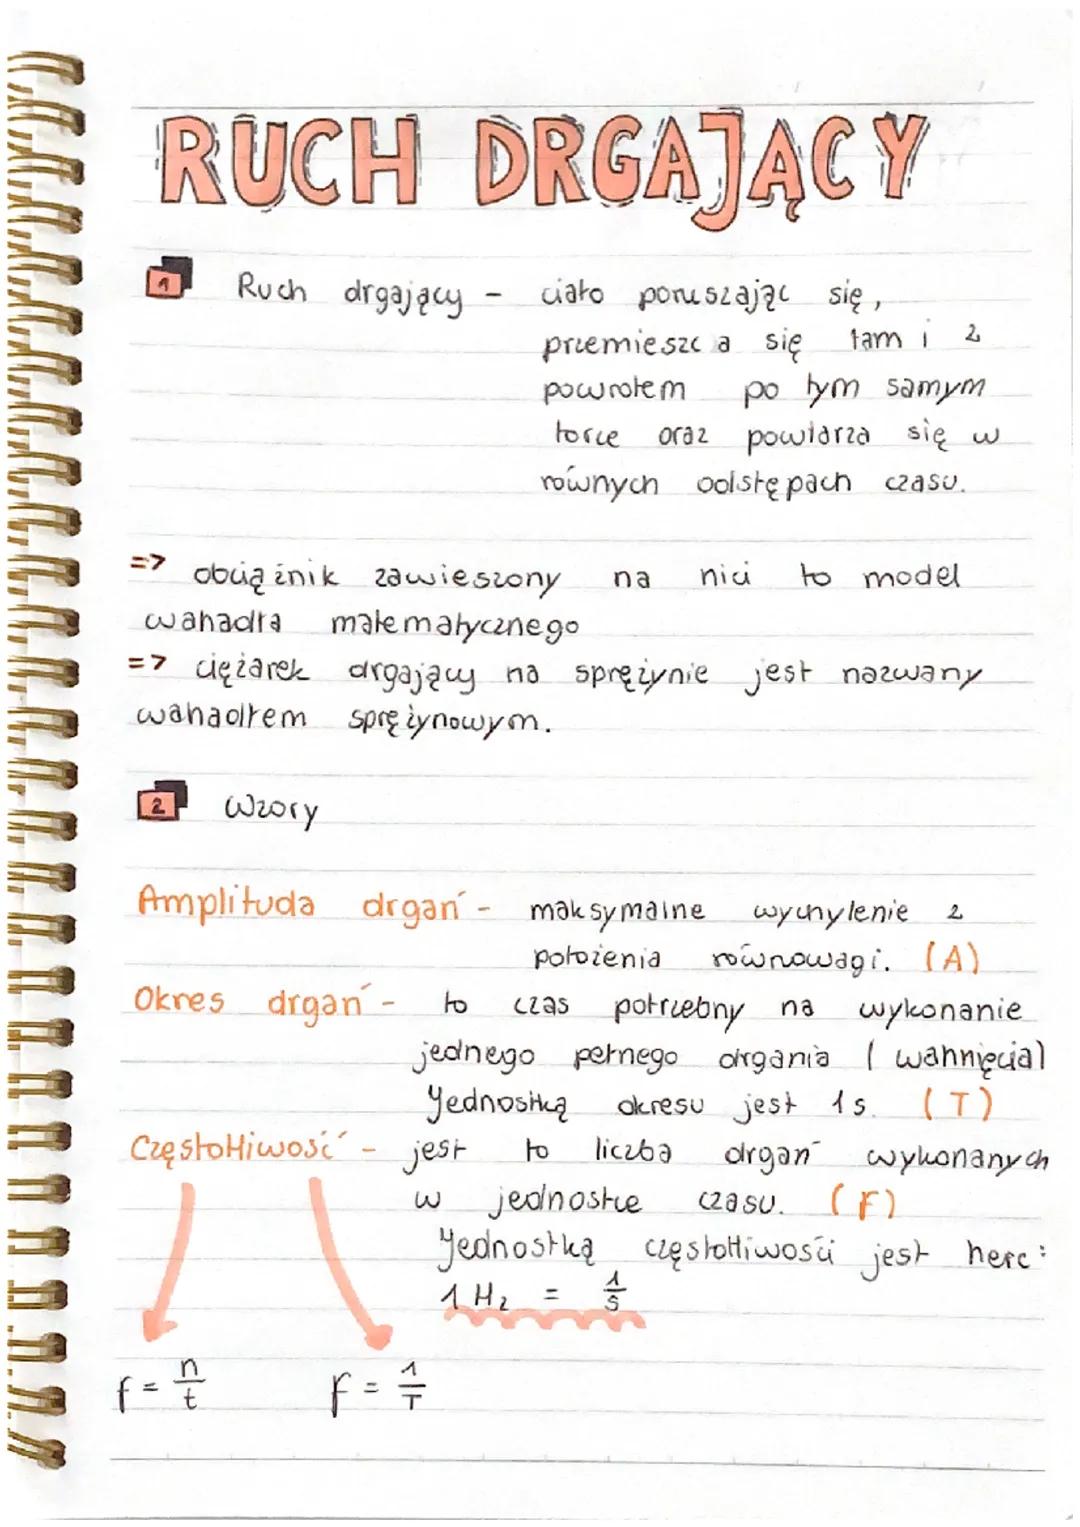 RUCH DRGAJĄCY
1 Ruch drgający - ciało poruszając się,
przemieszcza się tam i z
powrotem po tym samym
torze oraz powtarza się w
równych odstępach czasu.
=> obciążnik zawieszony na nici to model
wahadła matematycznego
=> ciężarek drgający na sprężynie jest nazwany
wahadłem sprężynowym.
2 Wzory
Amplituda drgań - maksymalne wychylenie z
położenia równowagi. (A)
Okres drgań - to czas potrzebny na wykonanie
jednego pełnego drgania (wahnięcia)
Jednostką okresu jest 1s. (T)
Częstotliwość - jest to liczba drgań wykonanych
w jednostce czasu. (F)
Jednostką częstotliwości jest herc:
1 Hz = 1/s
f = n/t f = 1/T